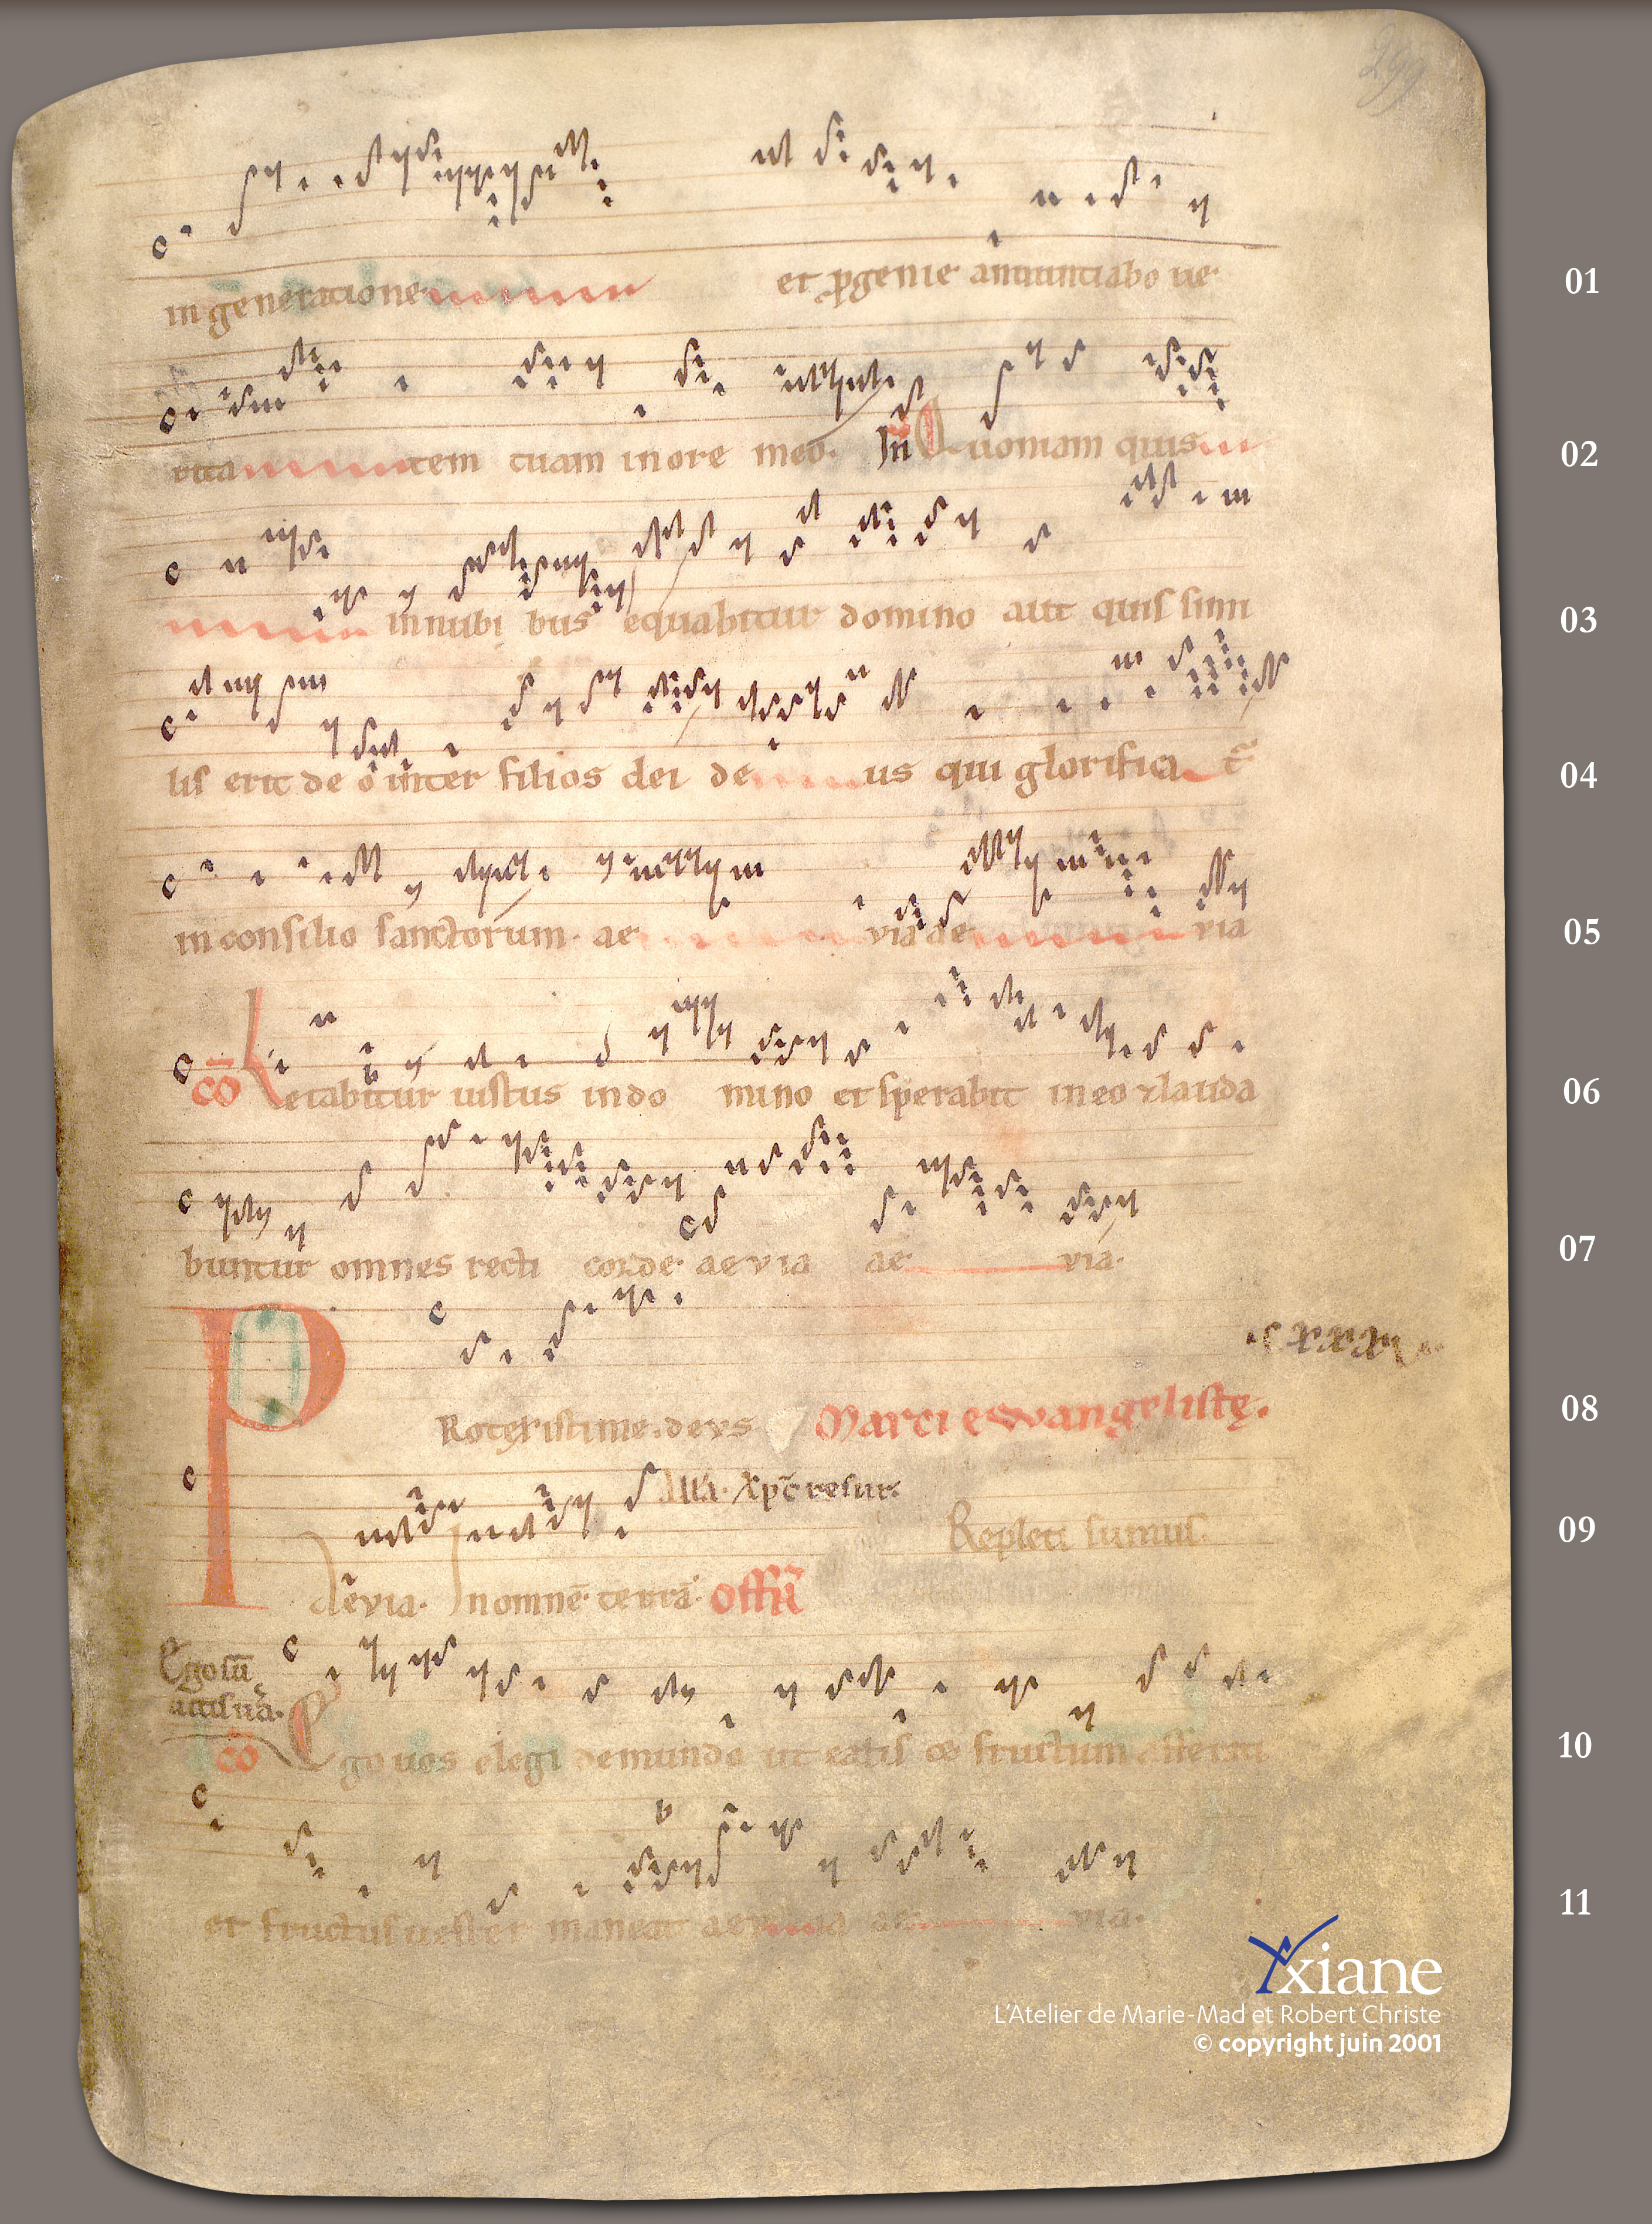 299
in generatione et ꝓgenie annuntiabo ue
01
rita tem tuam in ore meo. In Quoniam quis
02
in nubi bus equabitur domino aut quis simi
03
lis erit deo inter filios dei de us qui glorifica t̄
04
in consilio sanctorum. ae via ae via
05
cō Letabitur iustus in do mino et sperabit in eo ⁊ lauda
06
buntur omnes recti corde aevia ae via.
07
Protexisti me. deus Marci ewangelistę.
08
All'a. xp̄c resur.
Repleti sumus.
09
Aevia. In omnē terrā. offr̄
Ego sū
uitis uā.
cō Ego uos elegi de mundo ut eatis & fructum afferati
10
et fructus uester maneat aevia ae via.
11
xiane
L'Atelier de Marie-Mad et Robert Christe
© copyright juin 2001